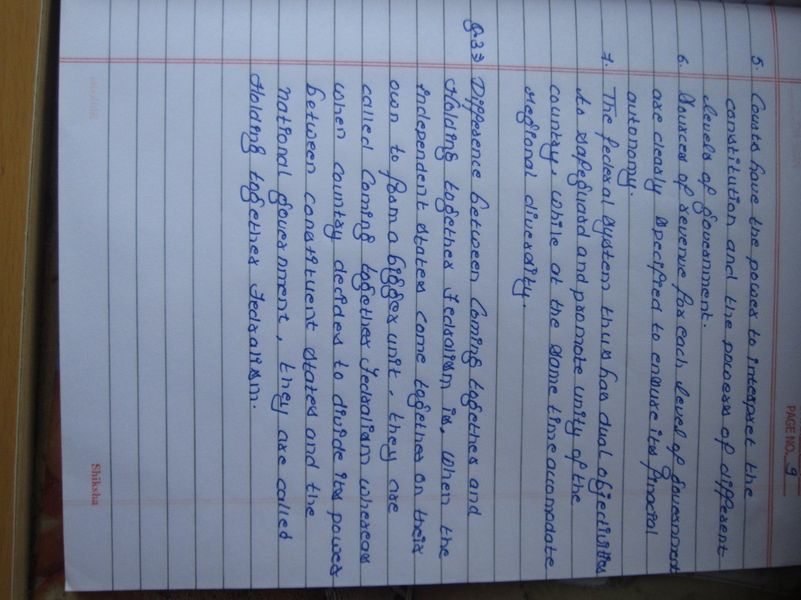 PAGE NO. 9
5. Courts have the power to interpret the
constitution and the powers of different
levels of government.
6. Sources of revenue for each level of government
are clearly specified to ensure its finacial
autonomy.
7. The federal system thus has dual objectivities
to safeguard and promote unity of the
country, while at the same time accomodate
regional diversity.
Q.33 Difference between Coming together and
Holding together Fedralism is, When the
independent states come together on their
own to form a bigger unit, they are
called Coming together Fedralism whereas
when country decides to divide its power
between constituent states and the
national government, they are called
Holding together Fedralism.
Shiksha